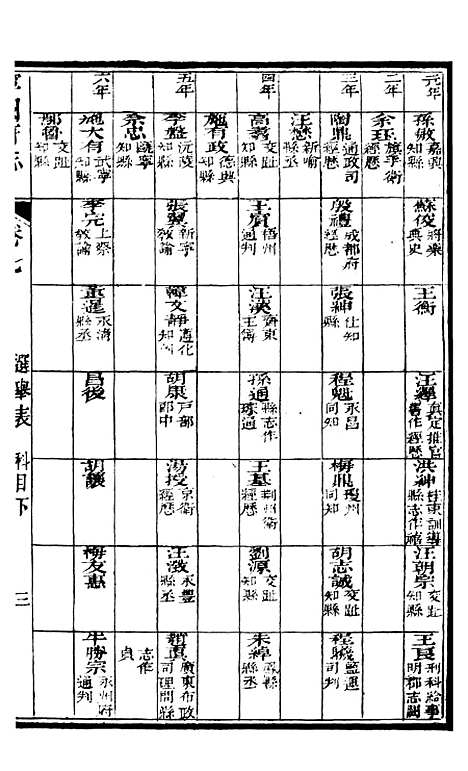 元年
孫敏 嘉興知縣
蘇俊 將樂典史
王衡
汪遲 真定推官 舊作經歷
洪紳 東訓導 縣志作
汪朝宗 交趾知縣
王良 刑科給事
二年
余珏 旗手衛經歷
三年
陶鼎 通政司經歷
殷禮 成都府經歷
張紳 仕知縣
程魁 永昌同知
梅鼎 瓊州同知
胡志誠 交趾知縣
程驥 鹽運司判
汪懋 新喻縣丞
四年
高壽 交趾知縣
王賓 梧州通判
汪漢 齊東主簿
孫通 縣志作 通
王基 荊州衛經歷
劉源 交趾知縣
朱綽 縣丞
施有政 德興知縣
五年
李盤 沅陵知縣
張翼 新寧教諭
韓文靜 遵化知州
胡康 戶部郎中
湯授 京衛經歷
汪激 永豐縣丞
趙真 廣東布政司理問 縣志作貞
余忠 知縣
六年
施大有 武寧知縣
李完 上蔡教諭
董暹 永濟縣丞
昌後
胡讓
梅友惠
牛勝宗 永州府通判
邢魯 交趾知縣
寧國府志
卷七
選舉表
科目下
三